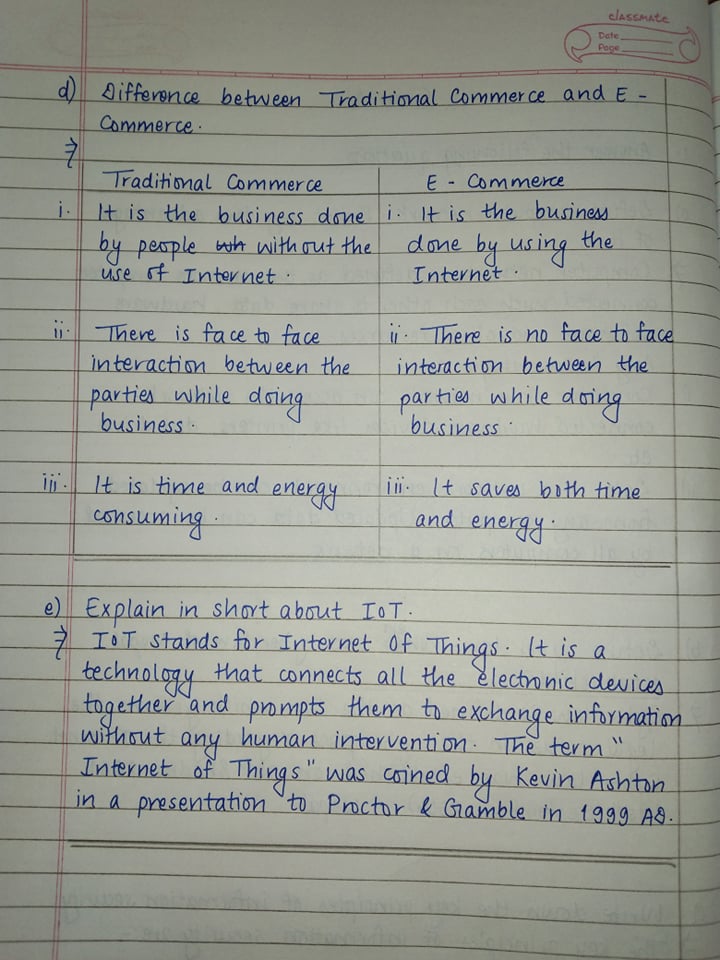 classmate
Date
Page
d) Difference between Traditional Commerce and E -
Commerce.
⇒
Traditional Commerce
i. It is the business done
by people without the
use of Internet.
ii. There is face to face
interaction between the
parties while doing
business.
iii. It is time and energy
consuming.
E - Commerce
i. It is the business
done by using the
Internet.
ii. There is no face to face
interaction between the
parties while doing
business.
iii. It saves both time
and energy.
e) Explain in short about IoT.
⇒ IoT stands for Internet Of Things. It is a
technology that connects all the electronic devices
together and prompts them to exchange information
without any human intervention. The term "
Internet of Things" was coined by Kevin Ashton
in a presentation to Proctor & Gamble in 1999 AD.